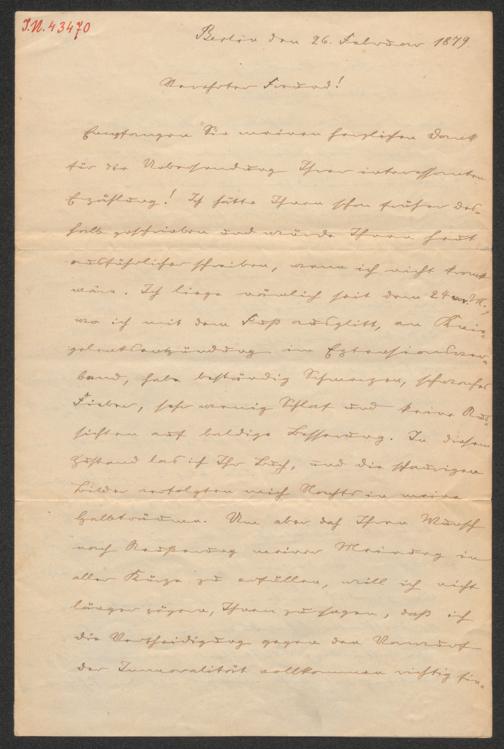 J.N. 43470
Berlin den 26. Februar 1879
Verehrter Freund!
Empfangen Sie meinen herzlichen Dank
für die Uebersendung Ihrer interessanten
Erzählung! Ich hätte Ihnen schon früher des-
halb geschrieben und würde Ihnen heut
ausführlicher schreiben, wenn ich nicht krank
wäre. Ich liege nämlich seit dem 24 v. M.,
wo ich mit dem Fuß ausglitt, an Knie-
gelenksentzündung im Extensionsver-
band, habe beständig Schmerzen, schwaches
Fieber, sehr wenig Schlaf und keine Aus-
sichten auf baldige Besserung. In diesem
Zustand las ich Ihr Buch, und die schaurigen
Bilder verfolgten mich Nachts in meine
Halbträume. Um aber doch Ihren Wunsch
nach Aeußerung meiner Meinung in
aller Kürze zu erfüllen, will ich nicht
länger zögern, Ihnen zu sagen, daß ich
die Vertheidigung gegen den Vorwurf
der Immoralität vollkommen richtig fin-